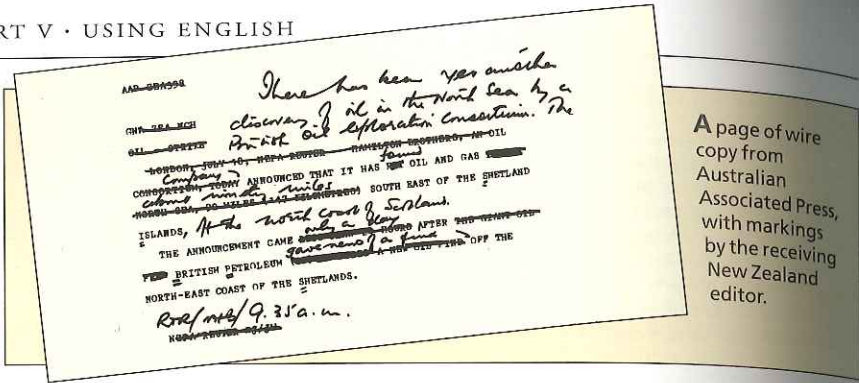 RT V · USING ENGLISH
AAP
There has been yet another
discovery of oil in the North Sea by a
British oil exploration consortium. The
OIL - STRIKE
LONDON, JULY 10, NZPA-REUTER - HAMILTON BROTHERS, AN OIL
Company found
CONSORTIUM, TODAY ANNOUNCED THAT IT HAS OIL AND GAS
about ninety miles
NORTH SEA, 90 MILES (147 KILOMETRES) SOUTH EAST OF THE SHETLAND
ISLANDS, off the north coast of Scotland.
only a day
THE ANNOUNCEMENT CAME HOURS AFTER THE GIANT OIL
gave news of a find
BRITISH PETROLEUM A NEW OIL FIND OFF THE
NORTH-EAST COAST OF THE SHETLANDS.
9.35 a.m.
NZPA-REUTER
A page of wire
copy from
Australian
Associated Press,
with markings
by the receiving
New Zealand
editor.